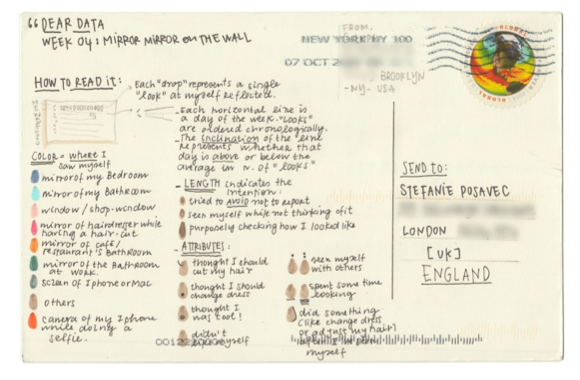 "DEAR DATA
WEEK 04: MIRROR MIRROR ON THE WALL
FROM:
NEW YORK NY 100
07 OCT 2
BROOKLYN
-NY- USA
GLOBAL
HOW TO READ IT:
Each "drop" represents a single
"look" at myself reflected.
Each horizontal line is
a day of the week. "Looks"
are ordered chronologically.
The inclination of the line
represents whether that
day is above or below the
average in n. of "looks"
COLOR = where I
saw myself
mirror of my Bedroom
mirror of my Bathroom
window / shop-window
mirror of hairdresser while
having a hair-cut
mirror of café/
restaurant's Bathroom
mirror of the Bathroom
at work.
screen of Iphone or Mac
others
camera of my Iphone
while doing a
selfie.
LENGTH indicates the
intention:
tried to AVOID not to report
seen myself while not thinking of it
purposely checking how I looked like
ATTRIBUTES:
thought I should
cut my hair
thought I should
change dress
thought I
was cool!
didn't
myself
seen myself
with others
spent some time
looking
did something
(like change dress
or adjust my hair)
myself
SEND TO:
STEFANIE POSAVEC
LONDON
[UK]
ENGLAND